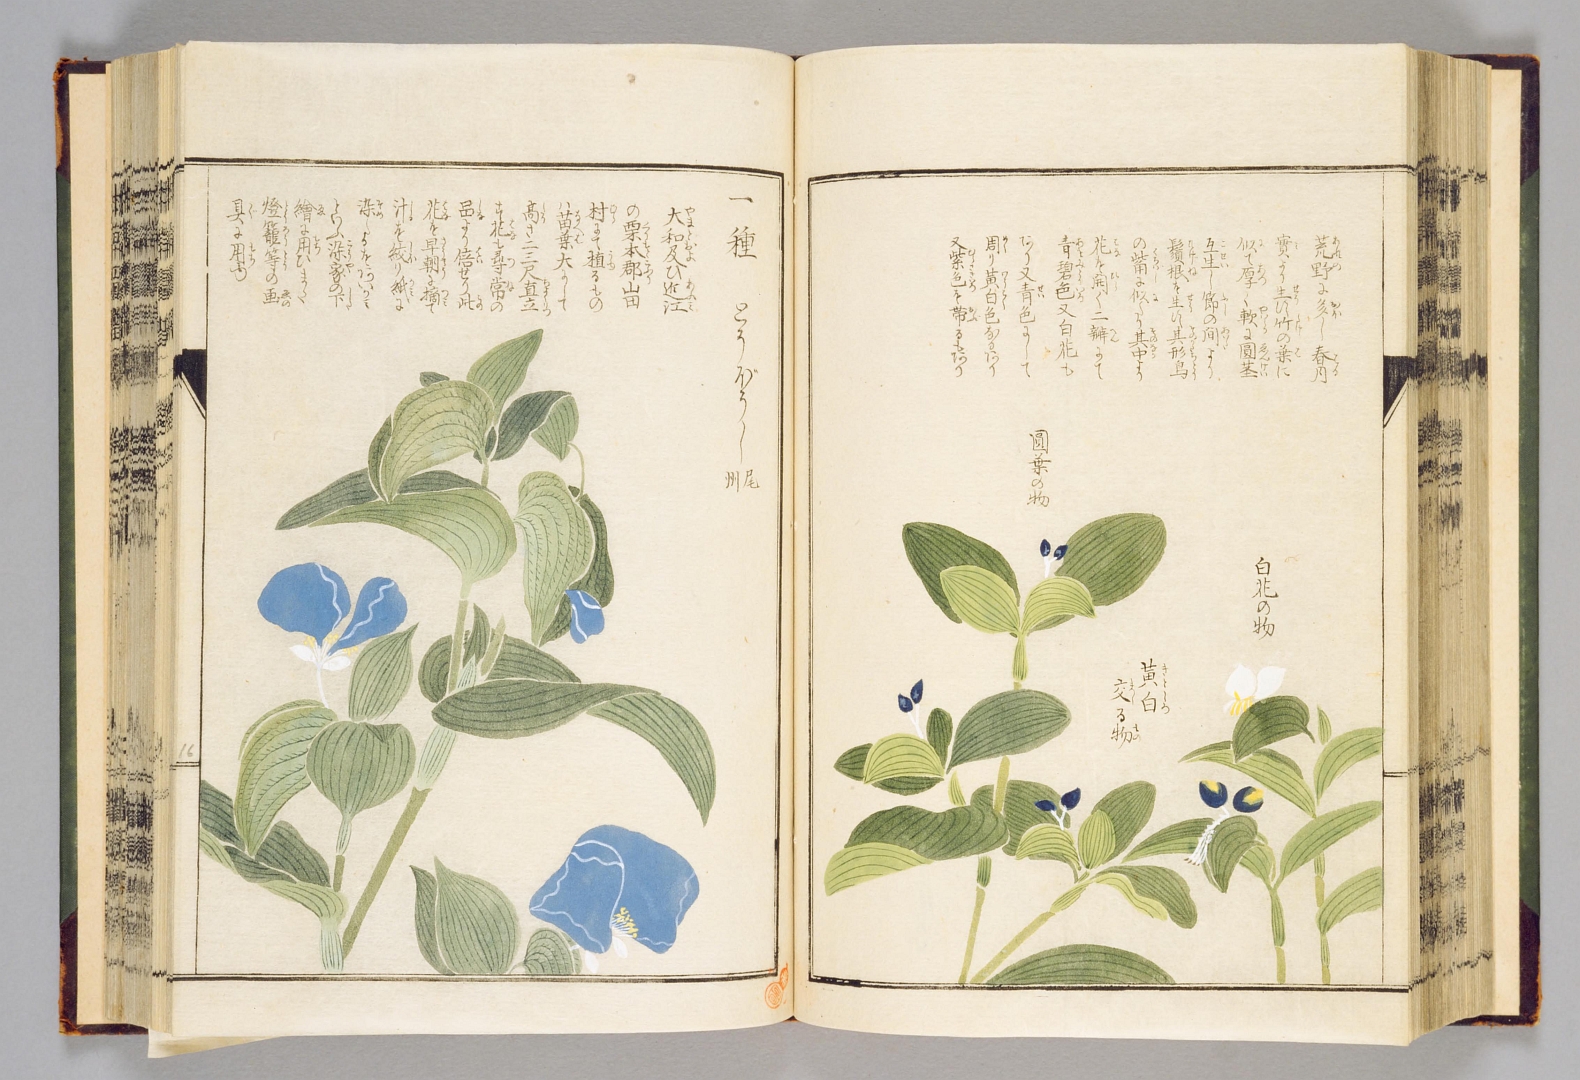 荒野に多し春月
實より生ず竹の葉に
似て厚く軟に圓茎
互生し節の間より
鬚根を生ず其形鳥
の觜に似たり其中より
花を開く二瓣にて
青碧色又白花も
あり又青色にして
周り黄白色なるあり
又紫色を帯るもあり
圓葉の物
白花の物
黄白
交る物
一種 とうぼうし 尾州
大和及び近江
の栗本郡山田
村にて植るもの
ハ苗葉大にして
高さ二三尺直立
す花も尋常の
品より倍せり此
花を早朝に摘て
汁を絞り紙に
染
といふ染家の下
繪に用ひまた
燈籠等の画
具に用ゆ
16